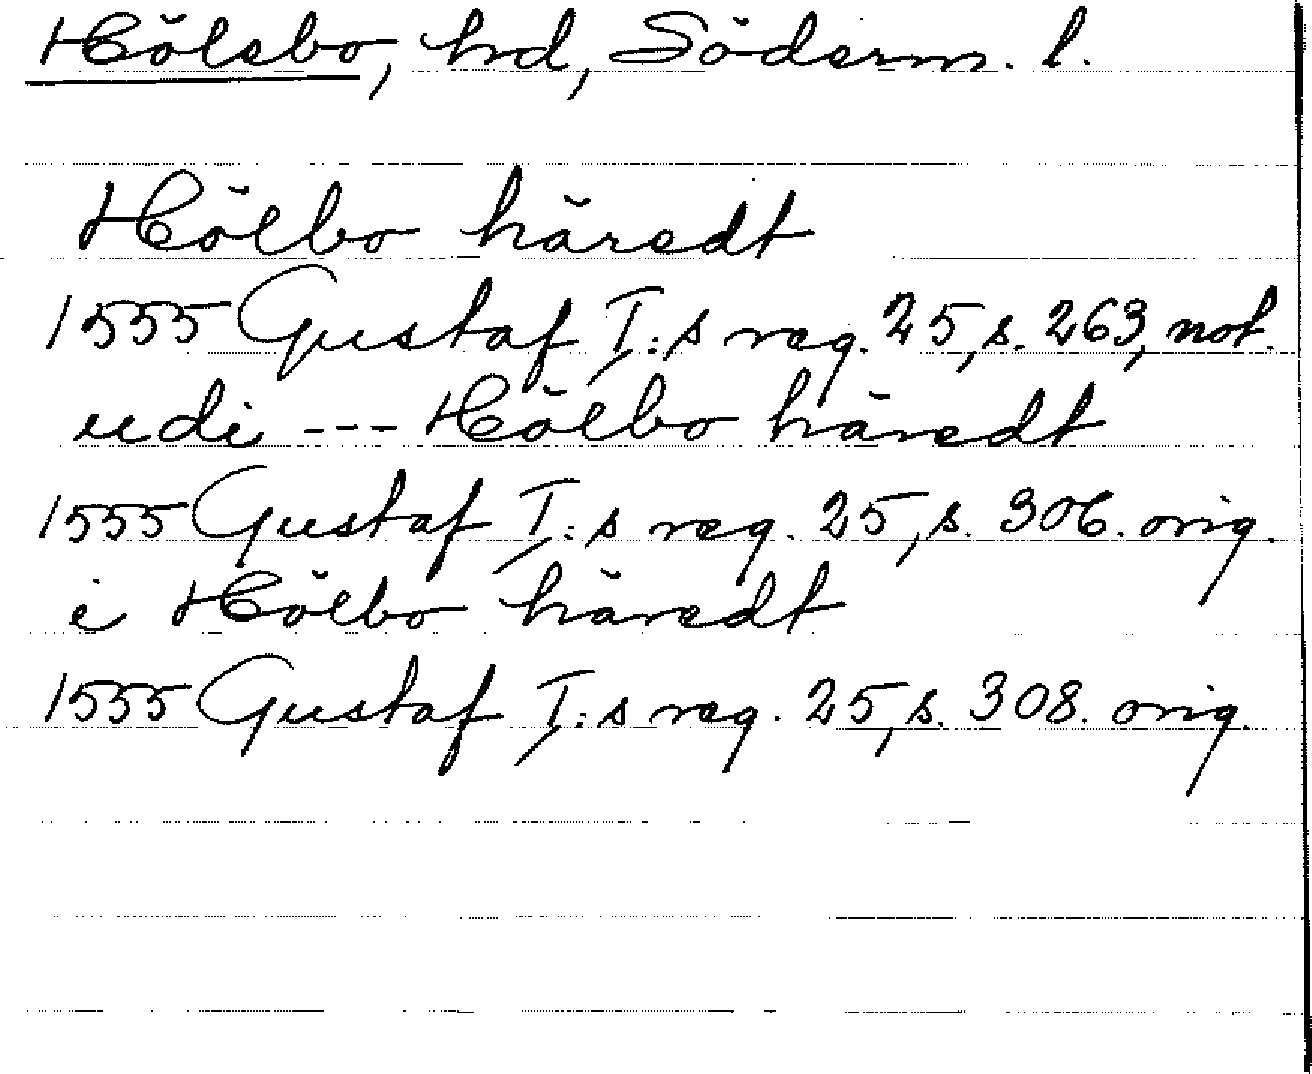 Hölebo, hd, Söderm. l.
Hölbo häredt
1555 Gustaf I:s reg. 25, s. 263, not.
udi --- Hölbo häredt
1555 Gustaf I:s reg. 25, s. 306. orig.
i Hölbo häredt
1555 Gustaf I:s reg. 25, s. 308. orig.